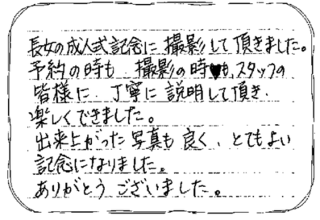 長女の成人式記念に撮影して頂きました。
予約の時も 撮影の時も、スタッフの
皆様に、丁寧に説明して頂き、
楽しくできました。
出来上がった写真も良く、とてもよい
記念になりました。
ありがとうございました。